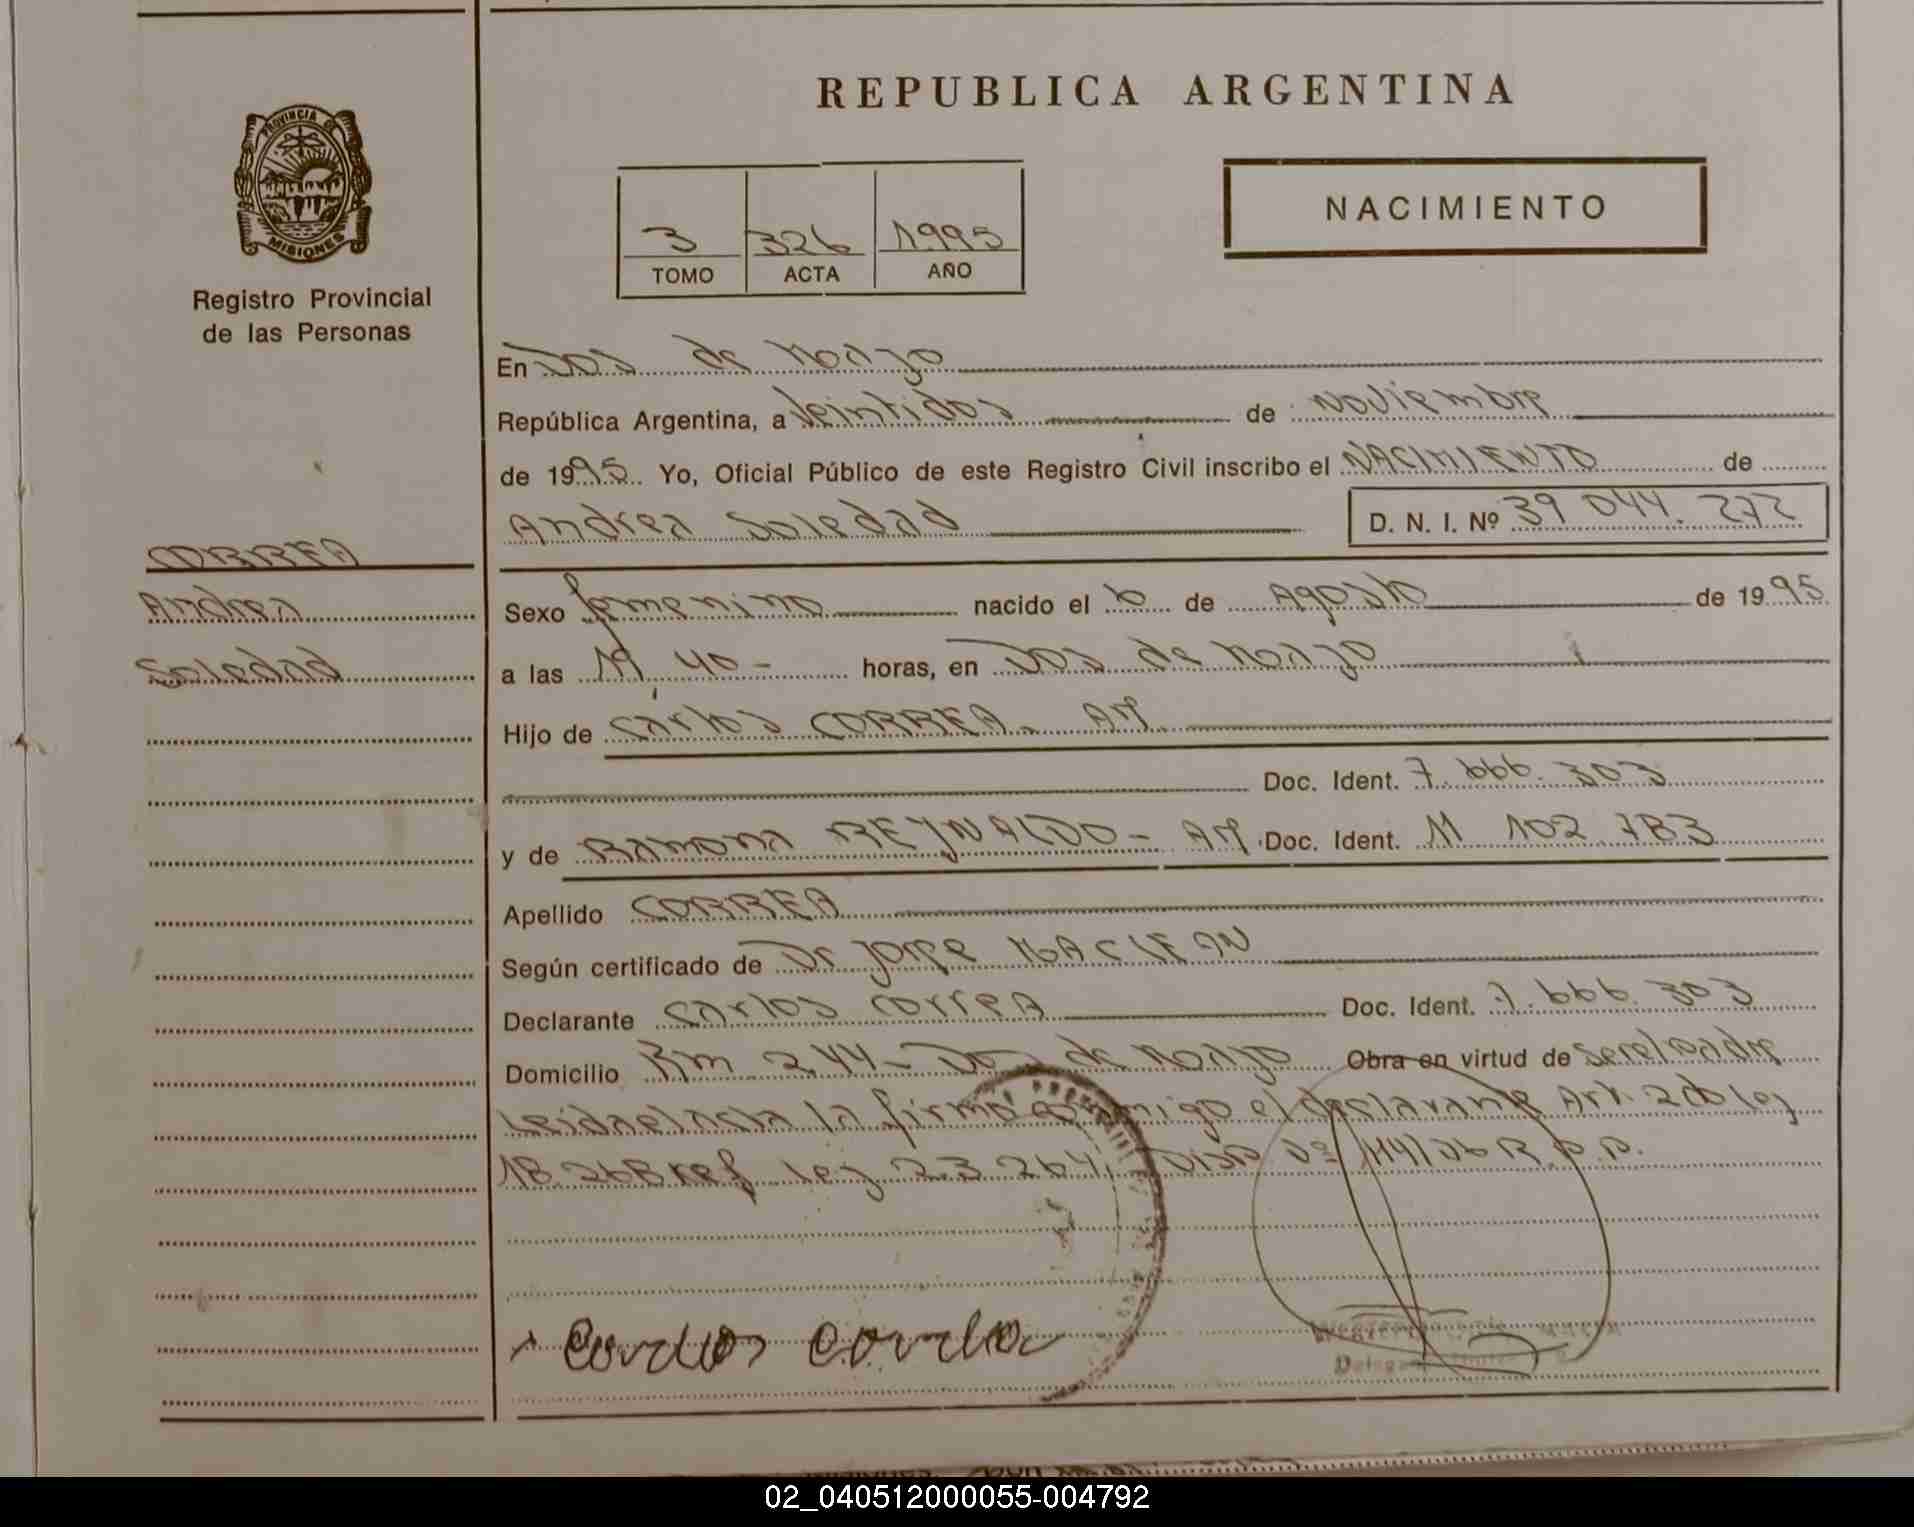 REPUBLICA ARGENTINA
PROVINCIA DE
MISIONES
Registro Provincial
de las Personas
3 326 1995
TOMO ACTA AÑO
NACIMIENTO
En Dos de Mayo
República Argentina, a Veintidos de Noviembre
de 1995 Yo, Oficial Público de este Registro Civil inscribo el NACIMIENTO de
Andrea Soledad D. N. I. Nº 39 044. 272
CORREA
Andrea
Soledad
Sexo femenino nacido el 6 de Agosto de 1995
a las 19, 40 - horas, en Dos de Mayo
Hijo de Carlos CORREA - AM
Doc. Ident. 7. 666. 303
y de Ramona REYNALDO - AM Doc. Ident. 11 102 783
Apellido CORREA
Según certificado de Dr Jorge MACLEAN
Declarante Carlos Correa Doc. Ident. 7. 666. 303
Domicilio Km 244 - Dos de Mayo Obra en virtud de ser el padre
Leida el acta la firma conmigo el declarante Art. 2do Ley
18 268 ref ley 23 264, Disp Nº R.P.P.
Carlos Correa
02_040512000055-004792